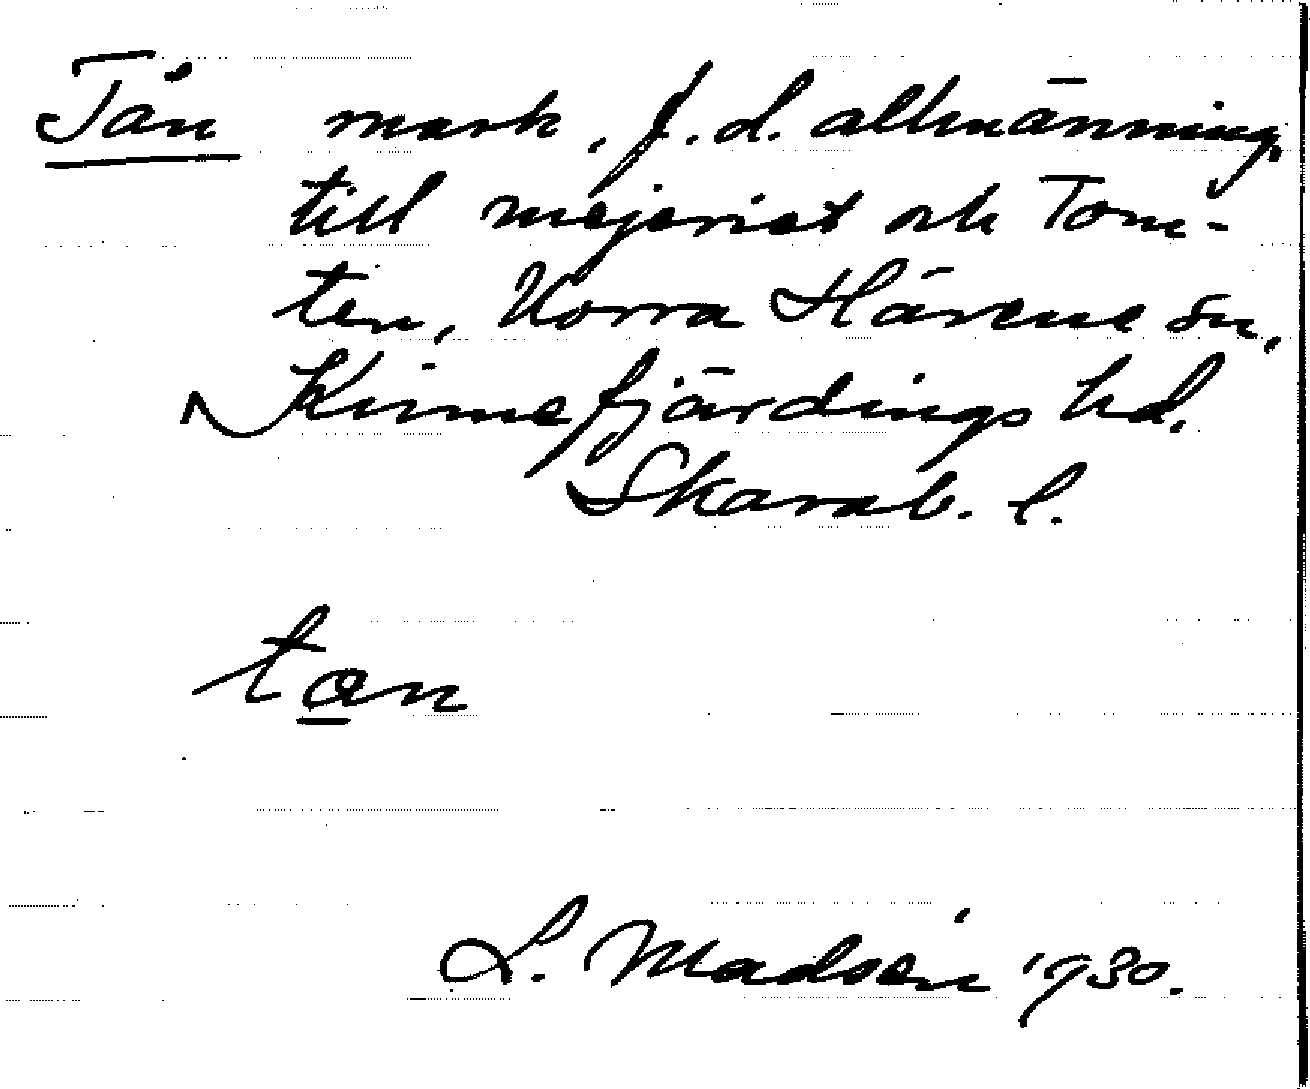 Tån mark, f.d. allmänning,
till mejeriet och Tom-
ten, Norra Härene sn,
Kinnefjärdings hd.
Skarab. l.
tan
L. Madsén 1930.